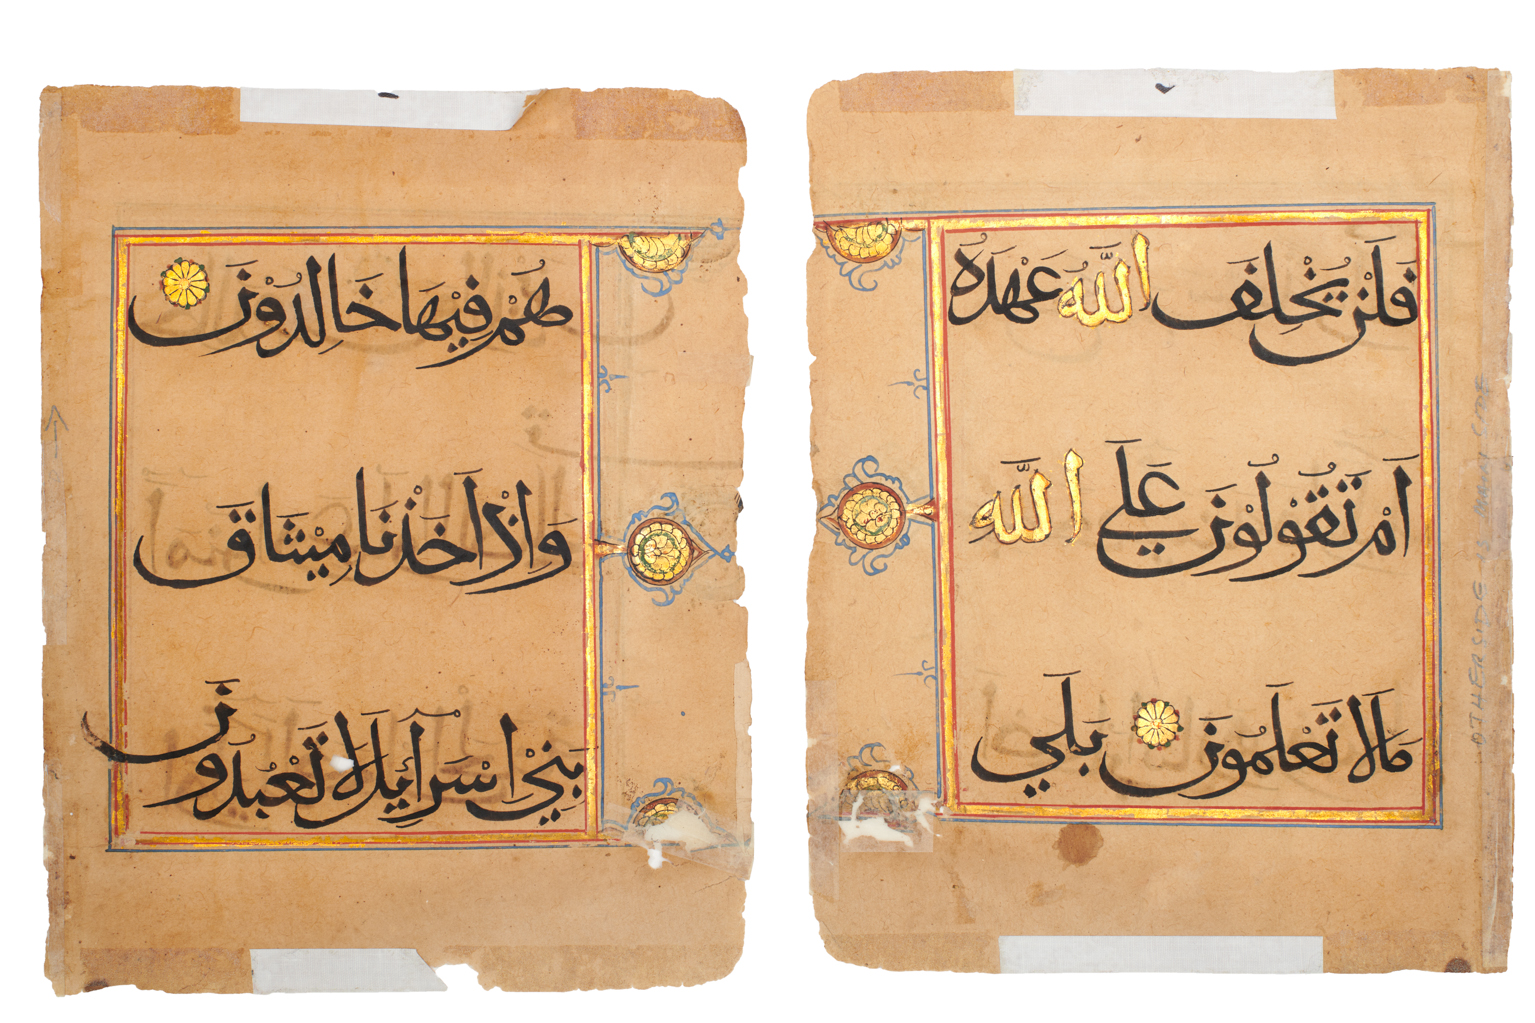 فَلَنْ يُخْلِفَ اللّٰهُ عَهْدَهُ
اَمْ تَقُوْلُوْنَ عَلَي اللّٰه
مَالَا تَعْلَمُوْنَ بَلَي
OTHER SIDE
هُمْ فِيْهَا خَالِدُوْنَ
وَاِذْ اَخَذْنَا مِيْثَاقَ
بَنِيْ اِسْرَآئِلَ لَا تَعْبُدُوْنَ